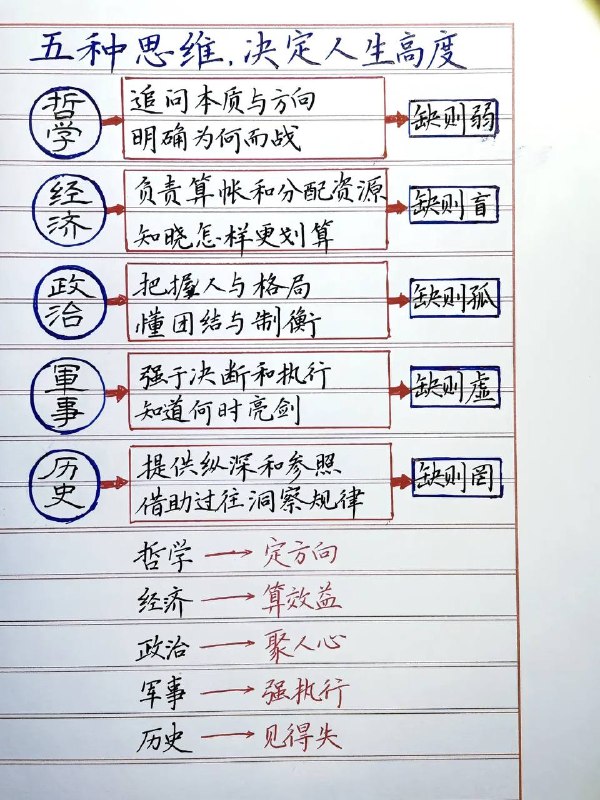 五种思维,决定人生高度
哲学
追问本质与方向
明确为何而战
缺则弱
经济
负责算帐和分配资源
知晓怎样更划算
缺则盲
政治
把握人与格局
懂团结与制衡
缺则孤
軍事
强于决断和执行
知道何时亮剑
缺则虚
历史
提供纵深和参照
借助过往洞察规律
缺则罔
哲学→定方向
经济→算效益
政治→聚人心
军事→强执行
历史→见得失